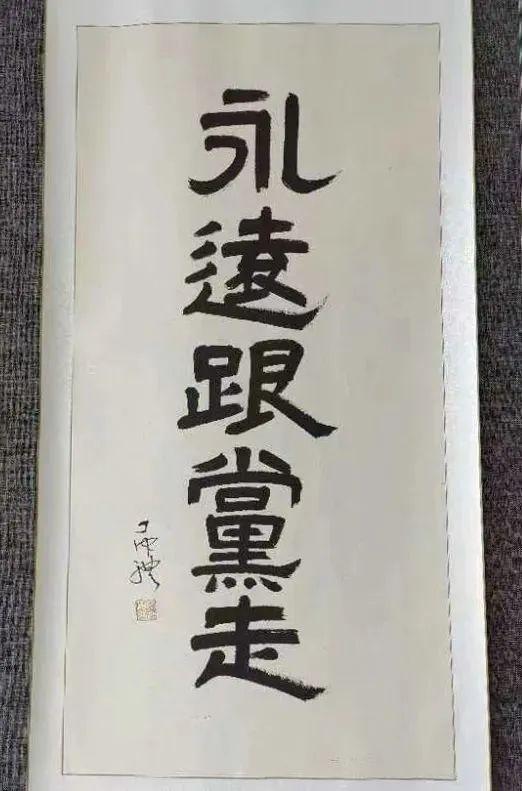 永遠跟黨走